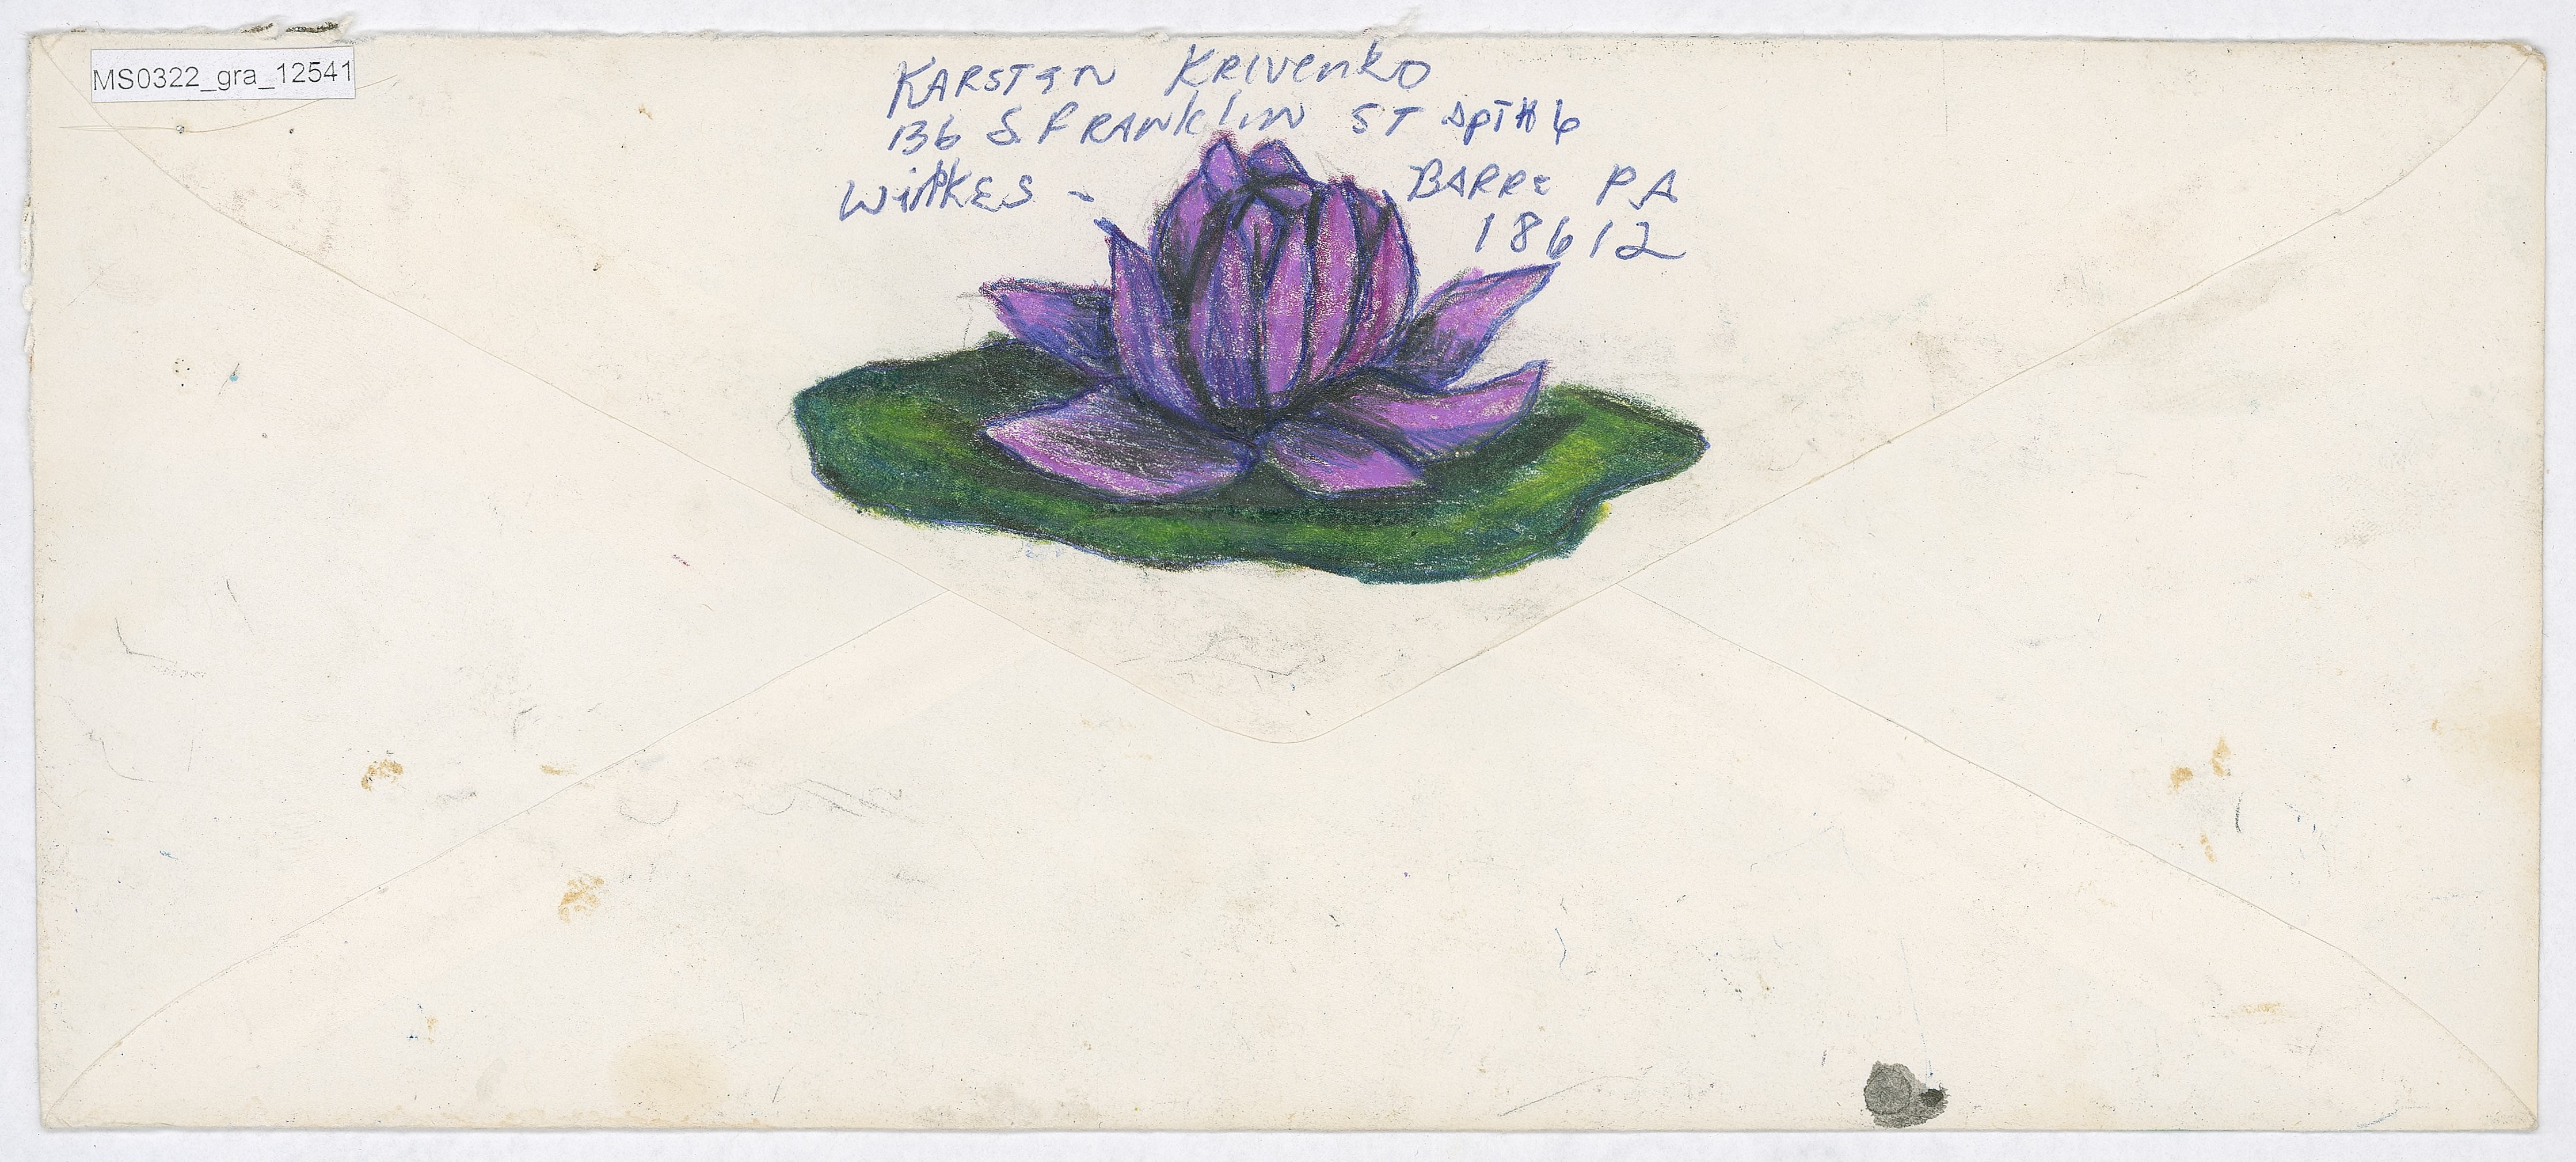 MS0322_gra_12541
KARSTEN KRIVENKO
136 S. FRANKLIN ST APT# 6
WILKES - BARRE PA
18612